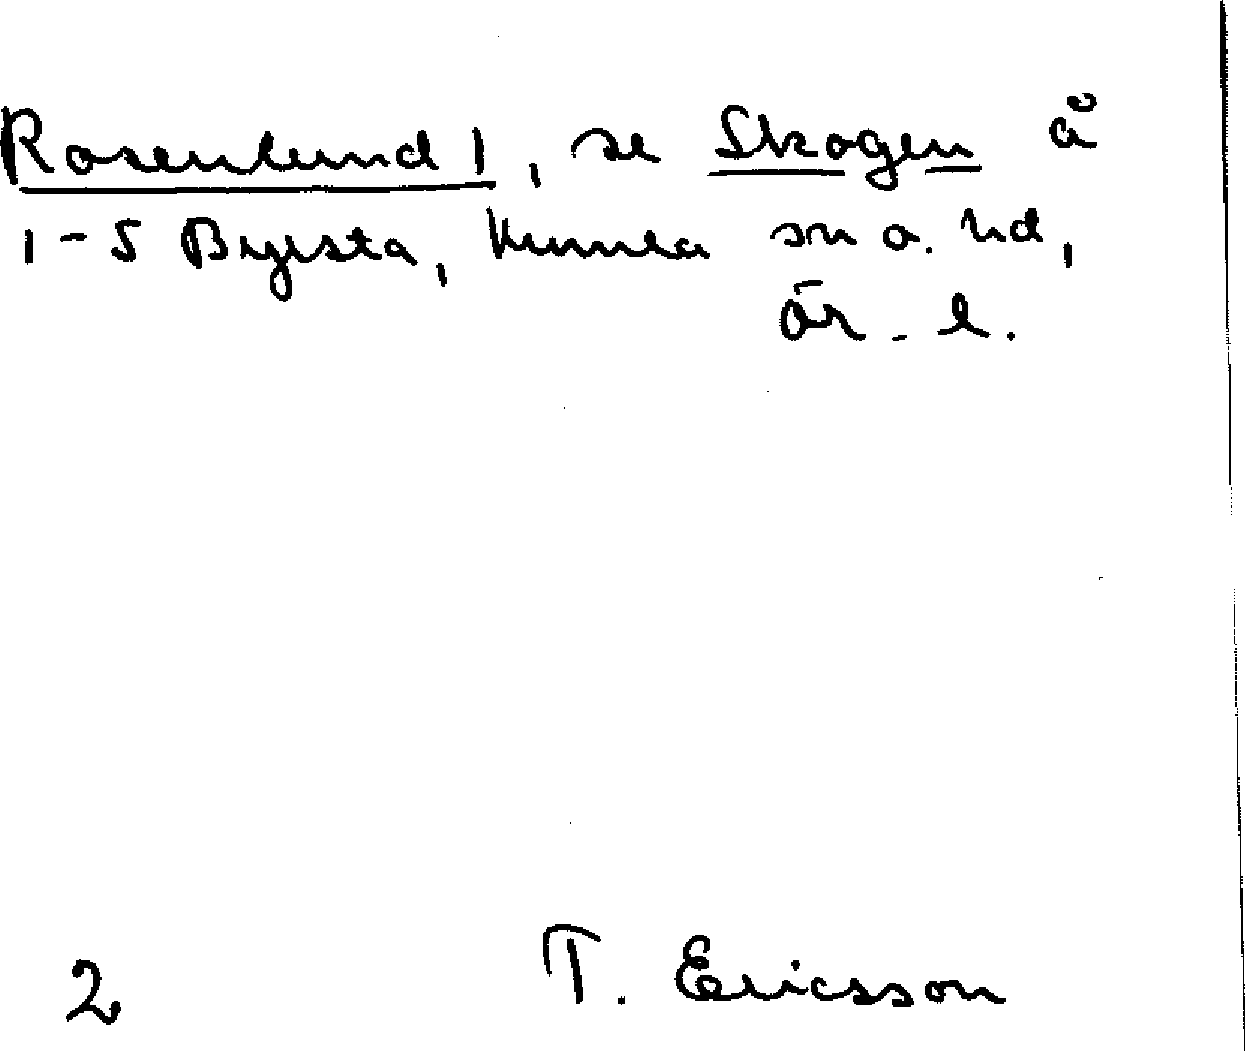 Rosenlund 1, se Skogen å
1-5 Byrsta, Kumla sn o. hd,
Ör. l.
2 T. Ericsson